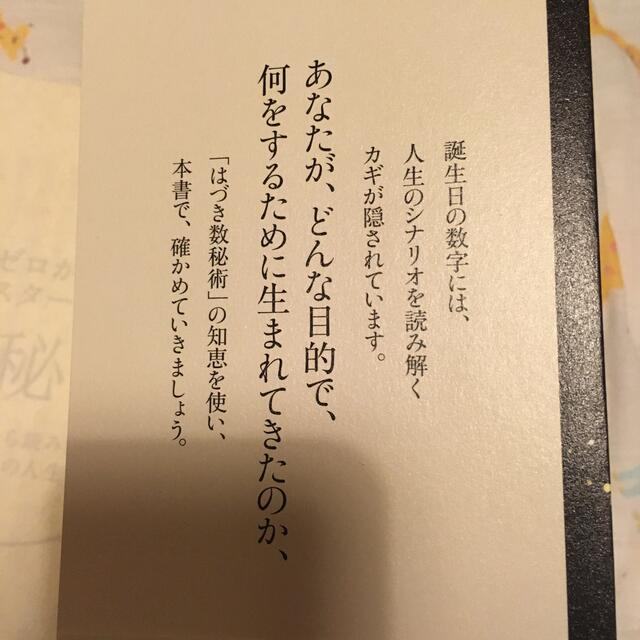 誕生日の数字には、
人生のシナリオを読み解く
カギが隠されています。
あなたが、どんな目的で、
何をするために生まれてきたのか、
「はづき数秘術」の知恵を使い、
本書で、確かめていきましょう。
ゼロか
スター
秘
の人生